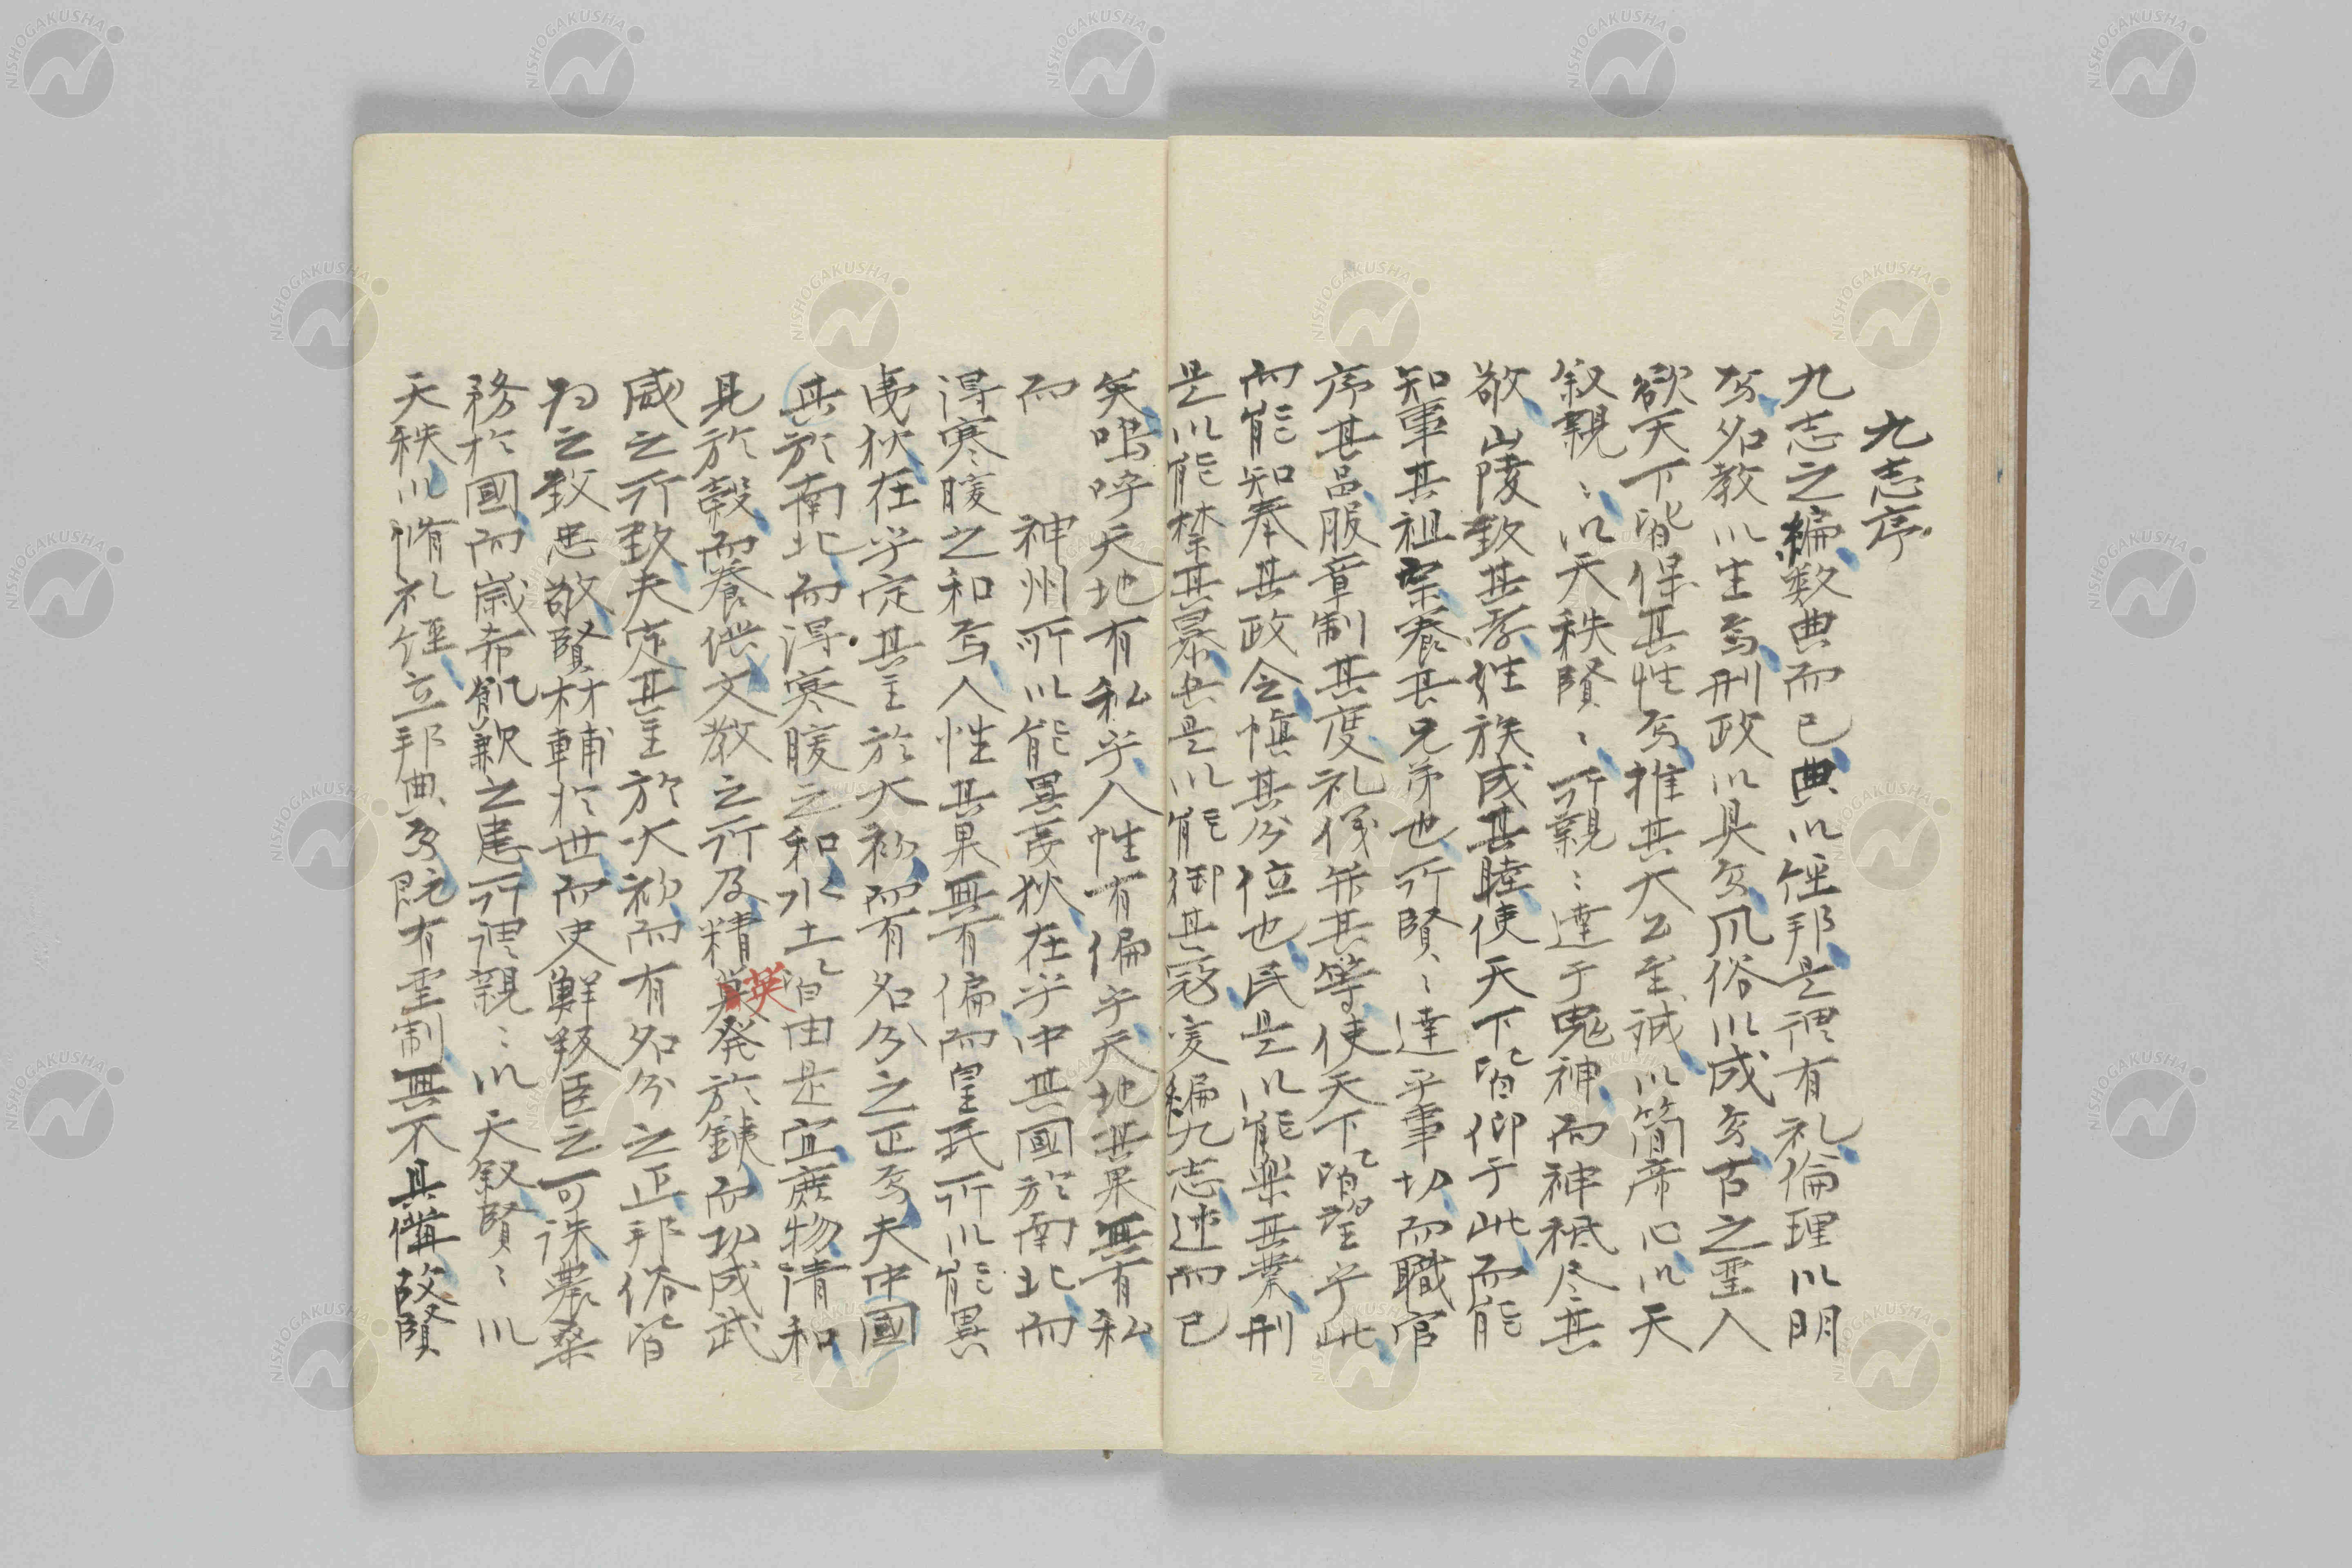 九志序
九志之編数典而已典以経邦是謂有礼倫理以明
焉名教以生焉刑政以具焉風俗以成焉古之聖人
欲天下皆保其性焉推其大公至誠以簡帝心以天
叙親〻以天秩賢〻所親〻達于鬼神而神祇尽其
敬山陵致其孝姓族成其睦使天下皆仰于此而能
知事其祖宗養其兄弟也所賢〻達乎事功而職官
序其品服章制其度礼儀弁其等使天下皆望乎此
而能知奉其政令慎其分位也民是以能楽其業刑
是以能禁其暴兵是以能御其寇爰編九志述而已
矣嗚呼天地有私乎人性有偏乎天地其果無有私
而　神州所以能異蛮狄在乎中其国於南北而
得寒暖之和焉人性其果無有偏而皇民所以能異
夷狄在乎定其主於大初而有名分之正焉夫中國
其於南北而得寒暖之和水土皆由是宜庶物清和
見於穀而養供文教之行及精英発於鉄而功成武
威之行致夫定其主於大初而有名分之正邦俗皆
為之致忠敬賢材輔於世而史鮮叛臣之可誅農桑
務於國而歳希飢歉之患所謂親〻以天叙賢〻以
天秩以脩礼経立邦典焉既有聖制無不具備故賢
NISHOGAKUSHA